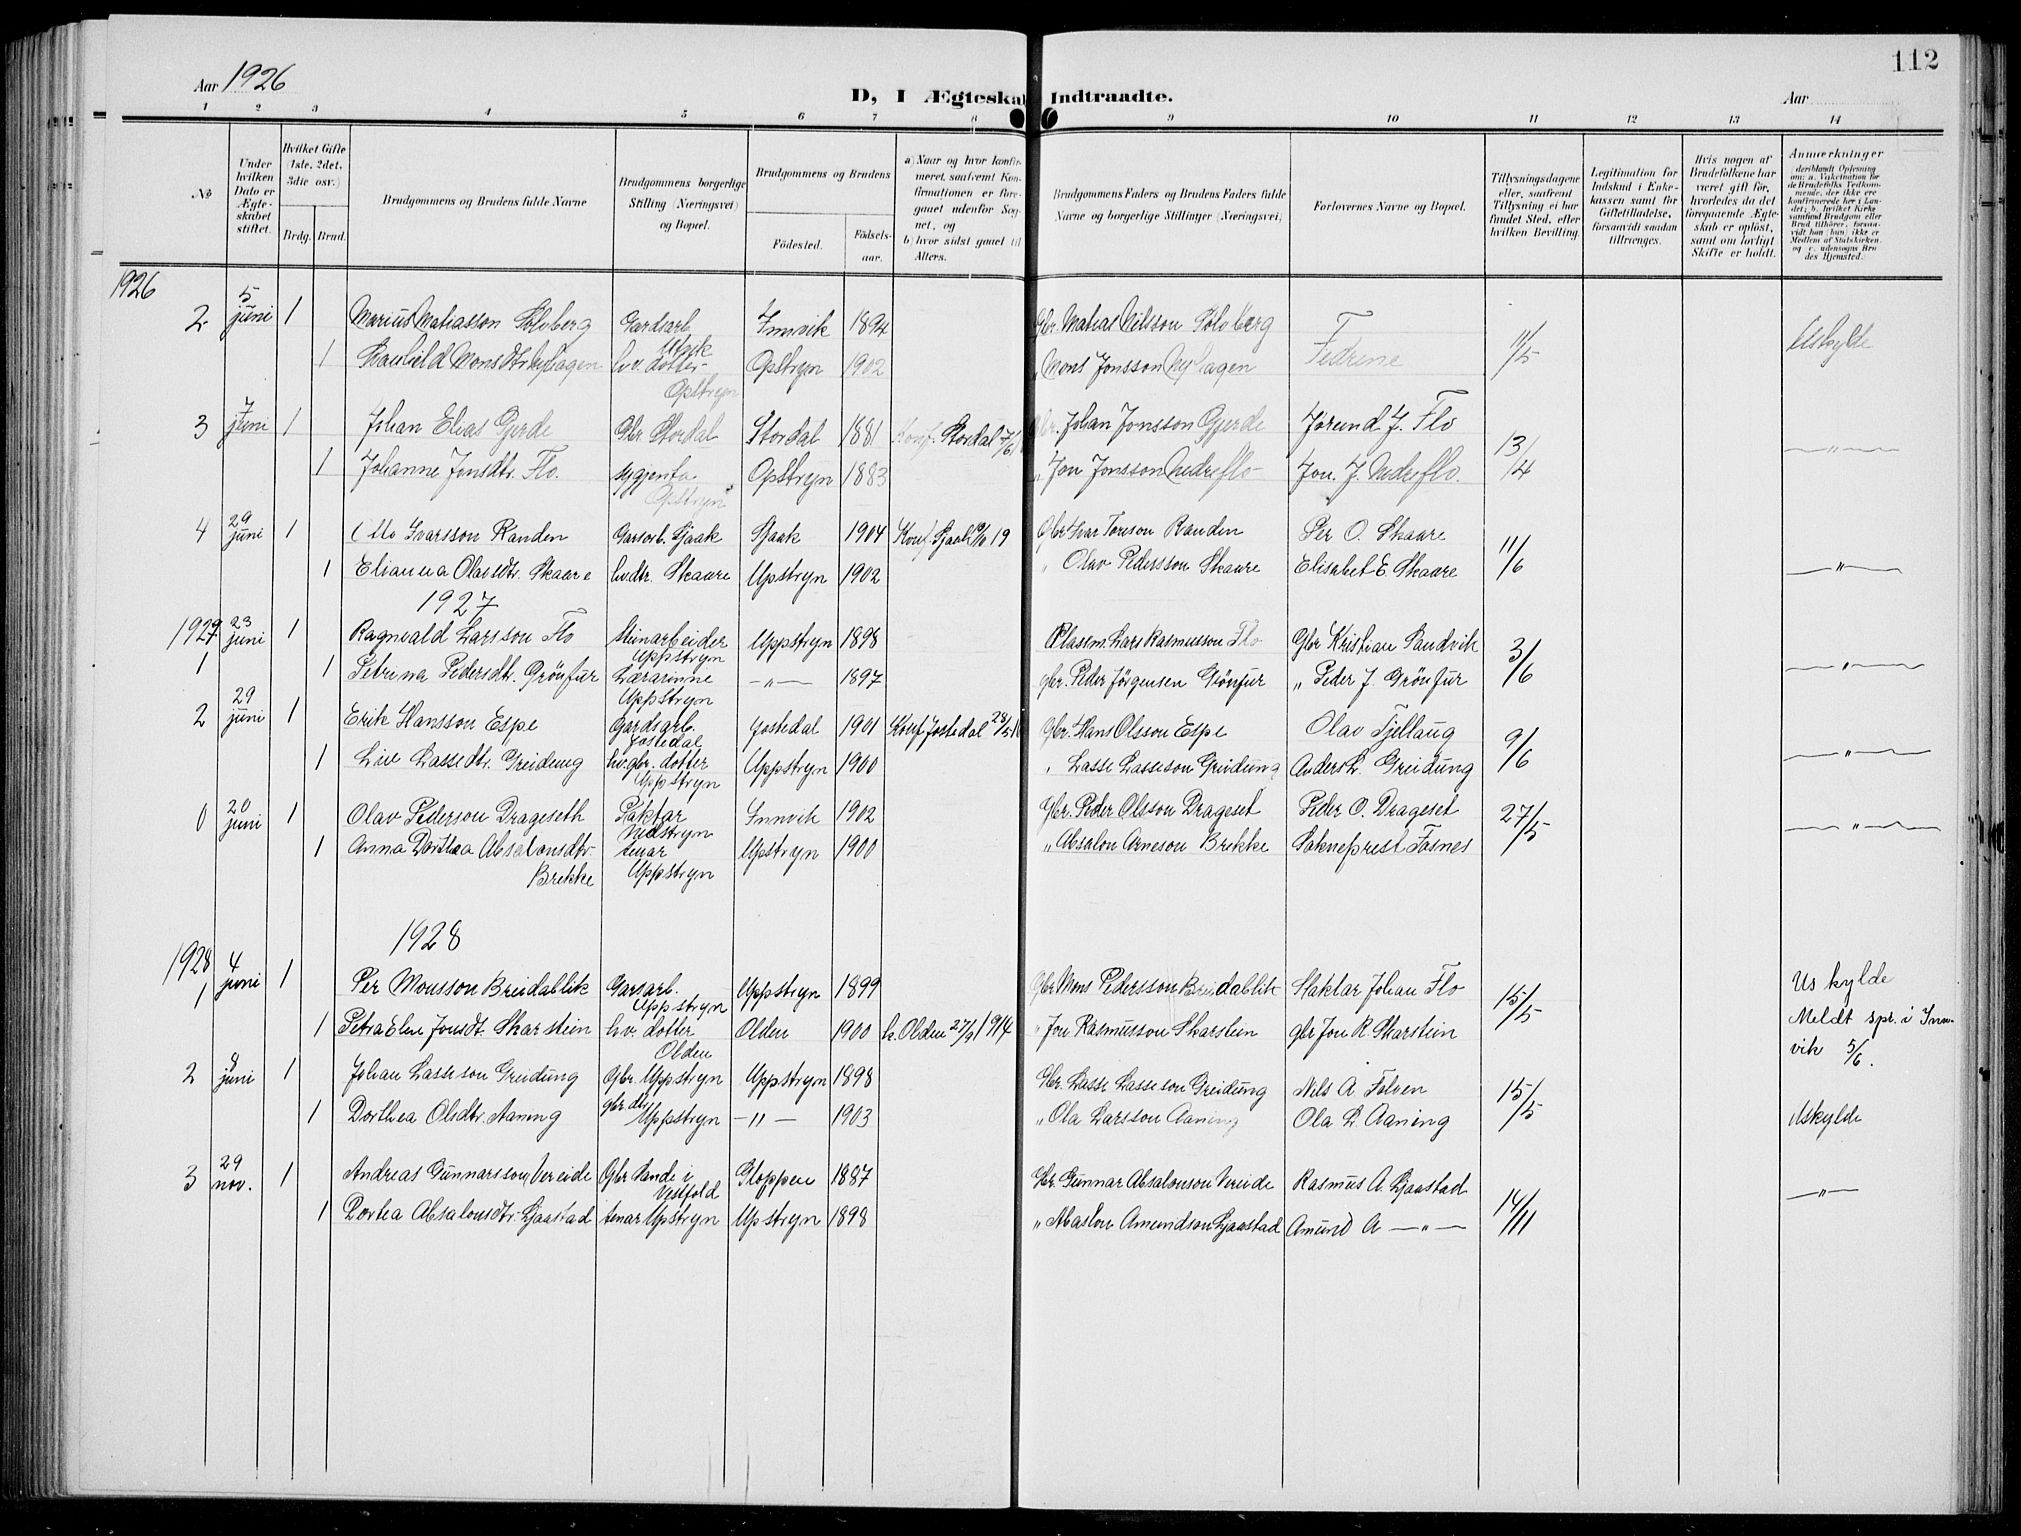 112
Aar 1926
D, I Ægteskab Indtraadte.
Aar
1 2 3 4 5 6 7 8 9 10 11 12 13 14
No
Under hvilken Dato er Ægteskabet stiftet.
Hvilket Gifte (1ste, 2det, 3die osv.)
Brdg. Brud.
Brudgommens og Brudens fulde Navne
Brudgommens borgerlige Stilling (Næringsvei) og Bopæl.
Brudgommens og Brudens
Födested.
Födselsaar.
a) Naar og hvor konfirmeret, saafremt Konfirmationen er foregaaet udenfor Sognet, og
b) hvor sidst gaaet til Alters.
Brudgommens Faders og Brudens Faders fulde Navne og borgerlige Stillinger (Næringsvei.)
Forlovernes Navne og Bopæl.
Tillysningsdagene eller, saafremt Tillysning ei har fundet Sted, efter hvilken Bevilling.
Legitimation for Indskud i Enkekassen samt for Giftetilladelse, forsaavidt saadan tiltrænges.
Hvis nogen af Brudefolkene har været gift för, hvorledes da det foregaaende Ægteskab er oplöst, samt om lovligt Skifte er holdt.
Anmærkninger
1926
2 5 juni 1 Marius Matiasson Solvberg Gardsarb. Innvik 1894 Gbr. Matias Nilsson Solvberg Fedrene 11/5 Uskylde
1 Monsdtr. hv. dotter Opstryn Opstryn 1902 " Mons Jonsson
3 7 juni 1 Johan Elias Gjerde Gbr. Stordal Stordal 1881 Konf. Stordal Gbr. Johan Jonsson Gjerde Jörund J. Flo 13/4 — " —
1 Johanne Jonsdtr. Flo. sygjenta Opstryn Opstryn 1883 " Jon Jonsson Nedreflo Jon. J. Nedreflo.
4 29 juni 1 Otto Ivarsson Randen Garsarb. Sjaak Sjaak 1904 Konf. Sjaak 19 Gbr Ivar Randen Per O. Skaare 11/6 — " —
1 Elianna Olavsdtr. Skaare hv.dtr. Skaare Upstryn 1902 " Olav Pedersson Skaare Elisabet E. Skaare
1927
1927 23 juni 1 Ragnvald Larsson Flo Steinarbeider Uppstryn Uppstryn 1898 Plassm. Lars Rasmusson Flo Gbr Kristian Sandvik 3/6 — " —
1 1 Petrina Pedersdtr. Grönfur Lærarinne Uppstryn — " — 1897 gbr. Peder Jörgensen Grönfur " Peder J. Grönfur
2 29 juni 1 Erik Hansson Espe Gardsarb. Jostedal Jostedal 1901 Konf Jostedal Gbr. Hans Olsson Espe Olav Fjellaug 9/6 — " —
1 Liv Lassedtr. Greidung hv.gbr. dotter Uppstryn Uppstryn 1900 " Lasse Lasseson Greidung Anders L. Greidung
0 20 juni 1 Olav Pederson Drageseth Nedstryn Innvik 1902 Gbr. Peder Oleson Drageset Peder O. Drageset 27/5 — " —
1 Anna Dorthea Absalonsdtr. Brekke tenar Uppstryn Upstryn 1900 " Absalon Arneson Brekke Sokneprest Fosnes
1928
1928 4 juni 1 Per Monsson Breidablik Garsarb. Uppstryn Uppstryn 1899 Gbr Mons Pedersson Breidablik Johan Flo 15/5 Uskylde
1 1 Petra Elen Jonsdt. Skarstein hv. dotter Olden Olden 1900 k. Olden 27/9 1914 " Jon Rasmusson Skarstein gbr Jon R. Skarstein Meldt spr. i Innvik 5/6.
2 8 juni 1 Johan Lasseson Greidung Gbr. Uppstryn Uppstryn 1898 Gbr. Lasse Lasseson Greidung Nils A Folven 15/5
1 Dorthea Olsdtr. Aaning gbr dtr Uppstryn — " — 1903 " Ola Larsson Aaning Ola L. Aaning Uskylde
3 29 nov. 1 Andreas Gunnarsson Vereide Gbr Sande i Vestfold Gloppen 1887 Gbr. Gunnar Absalonson Vereide Rasmus A. Ljaastad 14/11 — " —
1 Dortea Absalonsdtr. Ljaastad tenar Upstryn Upstryn 1898 " Abaslon Amundson Ljaastad Amund A — " —